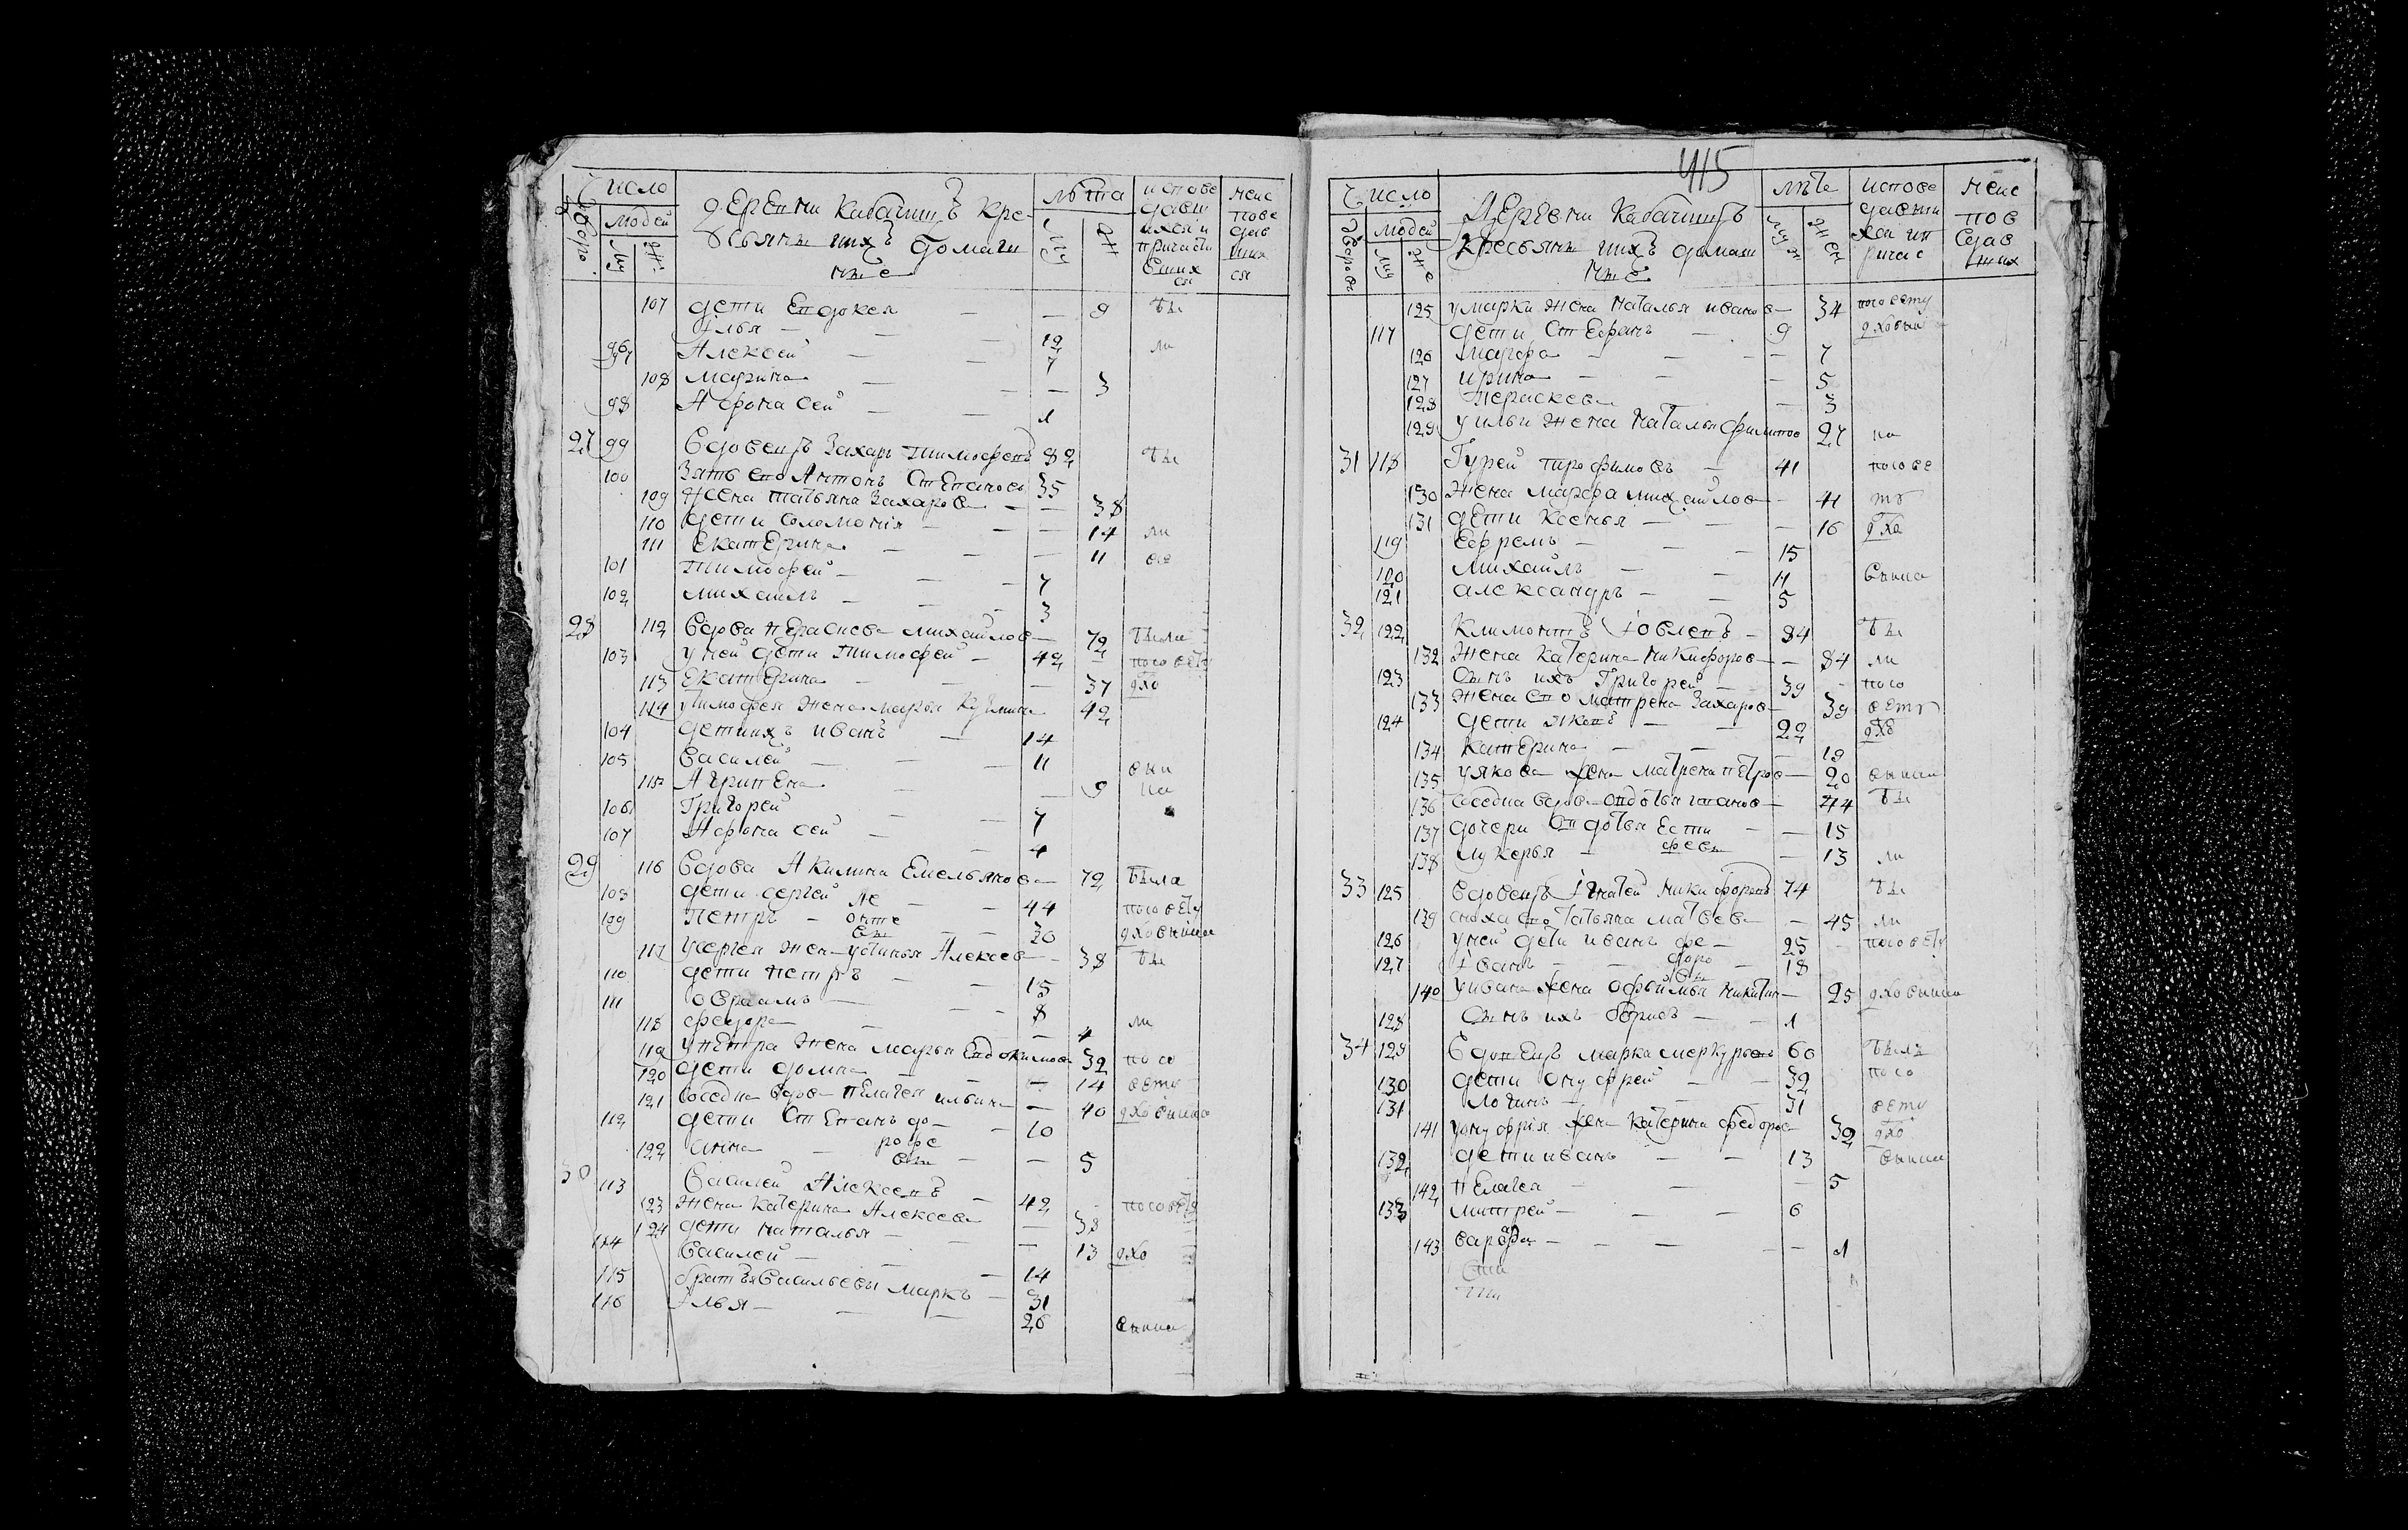 Число
дворо
людей
му
же
деревни Кабачищъ кре-
стьяне ихъ домаш
ние
лѣта
му
же
испове
давш
ихся и
причасти
вших
ся
неис
пове
дав
ших
ся
107 дети Евдокея — — 9 бы
96 Илья — — 12
97 Алексей — — 7 ли
108 Марина — — 3
98 Афонасей — — 1
27 99 вдовецъ Захаръ Тимофеевъ 82 бы
100 Зять его Антонъ Степановъ 35
109 Жена Татьяна Захарова — — 38
110 дети Соломонія — — 14 ли
111 Екатерина — — 11
101 Тимофей — — 7
102 Михаилъ — — 3
28 112 вдова Пераскева Михайлова — 72 были
103 у ней дети Тимофей — 42 по совету
113 Екатерина — — 37 дхо
114 у Тимофея жена Марья Кузмина 42
104 дети ихъ Иванъ — 14
105 Василей — — 11 вни
115 Агрипена — — 9 ка
106 Григорей — — 7
107 Афонасей — — 4
29 116 вдова Акилина Емельянова — 72 была
108 дети Сергей Ле — 44 по совету
109 Петръ — онте — 30 дховника
вы
117 у Сергея жена Устинья Алексеева — 38 бы
110 дети Петръ — — 15
111 Овраамъ — — 8
118 Федора — — 4 ли
119 у Петра жена Марья Евдокимова 32 по со
120 дети Домна — — 14 вету
121 соседка вдова Пелагея Ильина — 40 дховника
112 дети Степанъ до — 10
122 Анна — рофе — 5
вы
30 113 Василей Алексеевъ — 42 по совету
123 Жена Катерина Алексеева — 38
124 дети Наталья — — 13 дхо
114 Василей — — 14
115 братья Васильевы Маркъ — 31
116 Илья — — 26 вника
415
Число
дворовъ
людей
му
же
Деревни Кабачищъ
кресьяне ихъ домаш
ние
лѣте
муж
жен
испове
давши
хся ип
ричас
неис
пов
едав
ших
125 у Марка жена Наталья Иванова — 34 по совету
117 дети Стефанъ — 9 дховника
126 Марфа — — 7
127 Ирина — — 5
128 Пераскева — — 3
129 у Ильи жена Наталья Филипова 27
31 118 Гурей Трофимовъ — 41 по сове
130 Жена Марфа Михайлова — 41 ту
131 дети Ксенья — — 16 дхо
119 Ефремъ — — 15
120 Михаилъ — — 11 вника
121 Александръ — — 5
32 122 Климонтъ Іовлевъ — 84 бы
132 Жена Катерина Никифорова — 84 ли
123 Сынъ ихъ Григорей — 39 по со
133 Жена его Матрена Захарова — 39 вету
124 дети Яковъ — 22 дхо
134 Катерина — — 19
135 у Якова жена Матрена Петрова — 20 вники
136 соседка вдова Овдотья Иванова — 44 бы
137 дочери Овдотья Ести — 15
138 Лукерья — феевы — 13 ли
33 125 вдовецъ Игнатей Никифоровъ 74 бы
139 сноха его Татьяна Матвеева — 45 ли
126 у ней дети Иванъ фе — 25 по совету
127 Иванъ — доро — 18
вы
140 у Ивана жена Офимья Никитина — 25 дховника
128 Сынъ ихъ Борисъ — 1
34 129 вдовецъ Марка Меркурьевъ 60 былъ
130 дети Онуфрей — — 32 по со
131 Логинъ — — 31 вету
141 у Онуфрія жена Катерина Федорова 32 дхо
132 дети Иванъ — — 13 вника
142 Пелагея — — 5
133 Митрей — — 6
143 Варвара — — 1